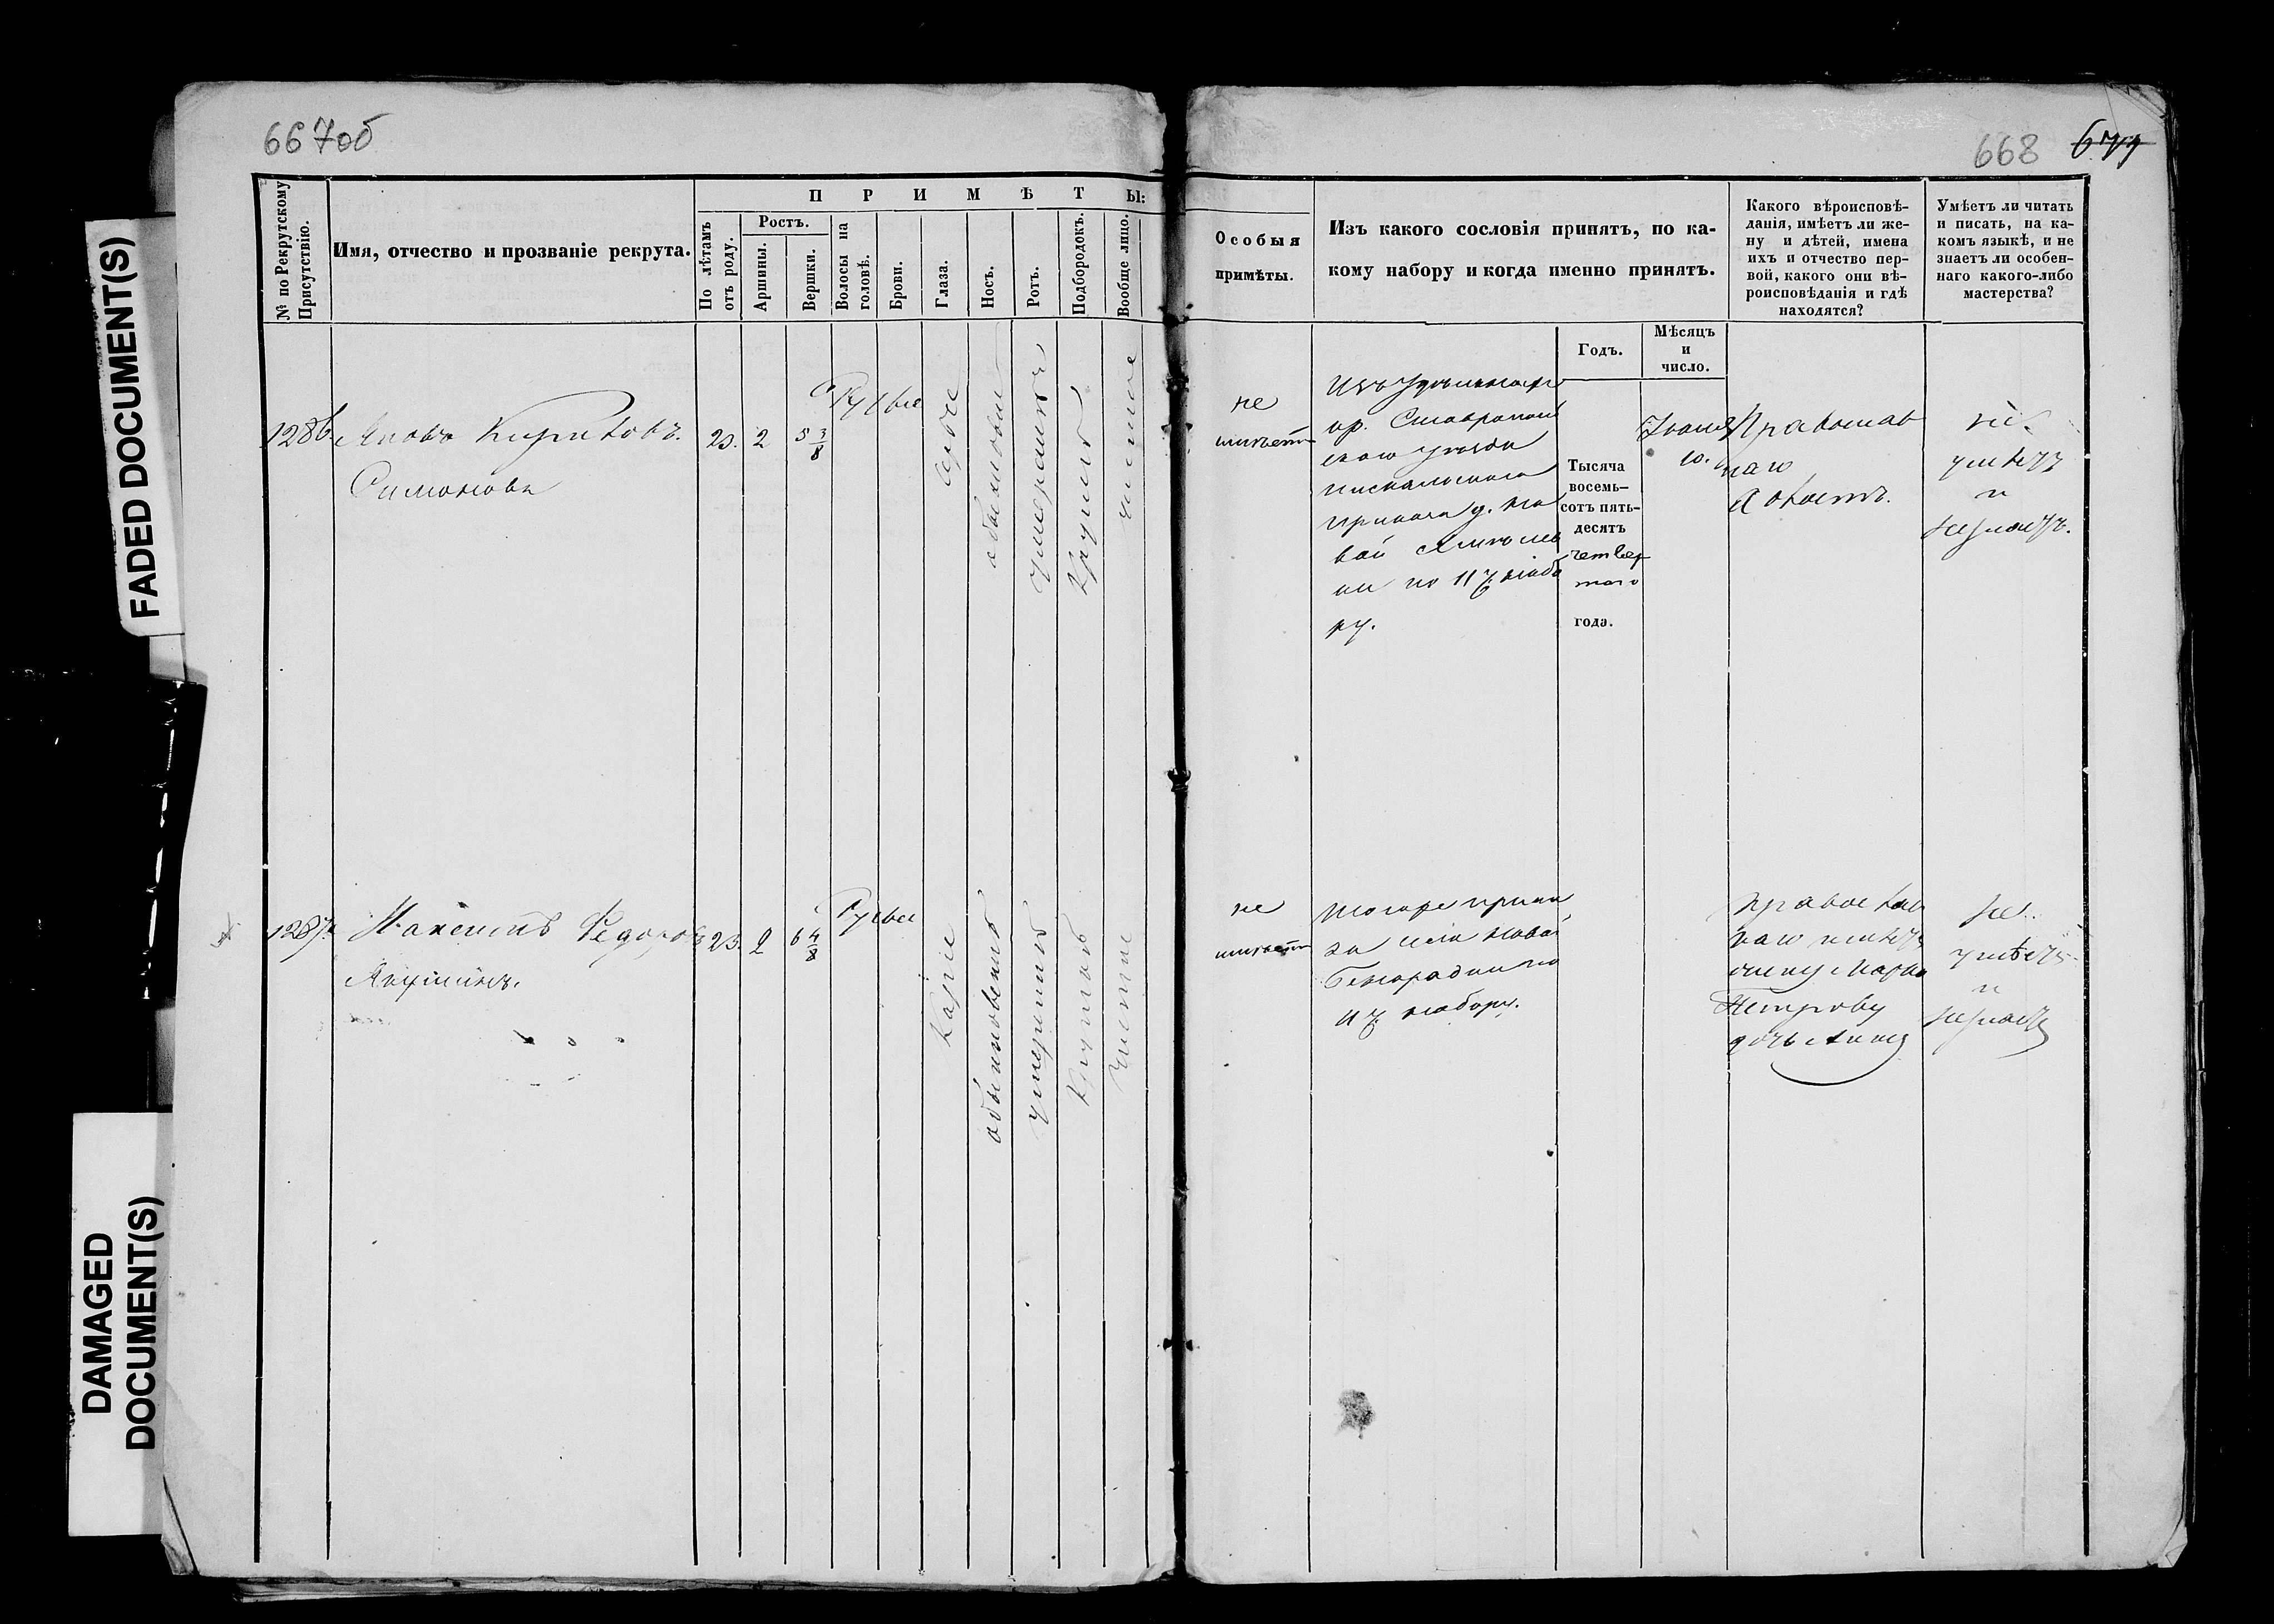 667об
668 677
FADED DOCUMENT(S)
DAMAGED
DOCUMENT(S)
№ по Рекрутскому
Присутствію.
Имя, отчество и прозваніе рекрута.
ПРИМѢТЫ:
По лѣтамъ
отъ роду.
Ростъ.
Аршины.
Вершки.
Волосы на
головѣ.
Брови.
Глаза.
Носъ.
Ротъ.
Подбородокъ.
Вообще лицо.
Особыя
примѣты.
Изъ какого сословія принятъ, по ка-
кому набору и когда именно принятъ.
Какого вѣроисповѣ-
данія, имѣетъ ли же-
ну и дѣтей, имена
ихъ и отчество пер-
вой, какого они вѣ-
роисповѣданія и гдѣ
находятся?
Умѣетъ ли читать
и писать, на ка-
комъ языкѣ, и не
знаетъ ли особен-
наго какого-либо
мастерства?
Годъ.
Мѣсяцъ
и
число.
1286.
Яковъ Кириловъ.
Симоновъ
23. 2 5 3/8
Русые
сѣрые
обыкновен
умѣренный
круглый
чистое
не
имѣетъ
Изъ Удѣльныхъ
кр. Ставрополь
скаго уѣзда
приказа д. Но
вой
по 11 набо
ру.
Тысяча
восемь-
сотъ пять-
десятъ
четвер
таго
года.
10.
Православ
наго
холостъ.
не
умѣетъ
и
не знаетъ.
1287.
Максимъ Федоровъ
23 2 6 4/8
Русые
Каріе
обыкновенный
умѣренный
круглый
Чистое
не
имѣетъ
тогоже прика
за села Новой
Бинарадки по
11 набору.
православ
наго имѣетъ
жену Марью
Петрову
дочь Анну
не
умѣетъ
и
не знаетъ